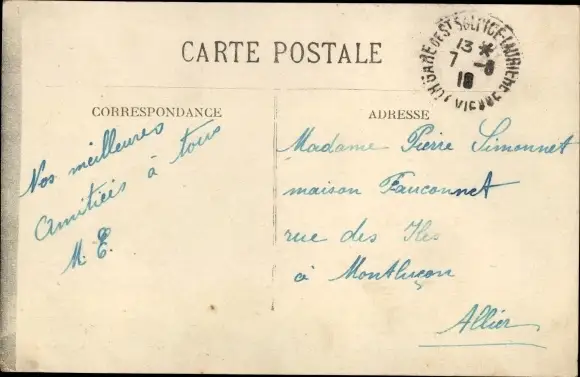 CARTE POSTALE
CORRESPONDANCE
Nos meilleures
Amitiés à tous
M. E.
ADRESSE
Madame Pierre Simonnet
maison Fauconnet
rue des Iles
à Montluçon
Allier
13 *
7 -8
18
GARE DE ST SULPICE-LAURIÈRE